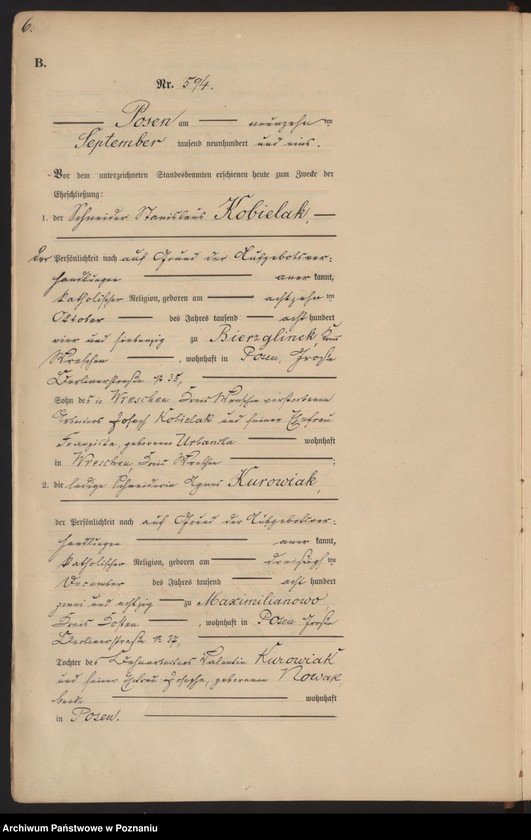 6.
B.
Nr. 594.
Posen am neunzehn ten
September tausend neunhundert und eins.
Vor dem unterzeichneten Standesbeamten erschienen heute zum Zwecke der
Eheschließung:
1. der Schneider Stanislaus Kobielak,
der Persönlichkeit nach auf Grund der Aufgebotsver-
handlungen aner kannt,
katholischer Religion, geboren am achtzehn ten
Oktober des Jahres tausend acht hundert
vier und siebenzig zu Bierzglinek, Kreis
Wreschen, wohnhaft in Posen, Große
Berlinerstraße № 38,
Sohn des in Wreschen, Kreis Wreschen verstorbenen
Arbeiters Joseph Kobielak und seiner Ehefrau
Franziska, geborenen Urbanska wohnhaft
in Wreschen, Kreis Wreschen;
2. die ledige Schneiderin Agnes Kurowiak,
der Persönlichkeit nach auf Grund der Aufgebotsver-
handlungen aner kannt,
katholischer Religion, geboren am dreißigs ten
December des Jahres tausend acht hundert
zwei und achtzig zu Maximilianowo
Kreis Kosten, wohnhaft in Posen Große
Berlinerstraße № 37,
Tochter des Valentin Kurowiak
und seiner Ehefrau Josepha, geborenen Nowak,
beide wohnhaft
in Posen.
Archiwum Państwowe w Poznaniu